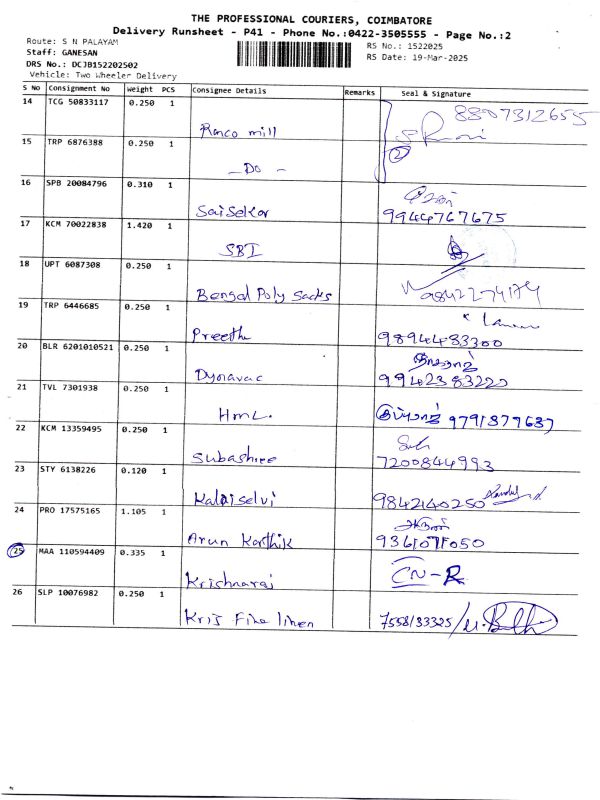 THE PROFESSIONAL COURIERS, COIMBATORE
Delivery Runsheet - P41 - Phone No.:0422-3505555 - Page No.:2
Route: S N PALAYAM
RS No.: 1522025
Staff: GANESAN
RS Date: 19-Mar-2025
DRS No.: DCJB152202502
Vehicle: Two Wheeler Delivery
S No Consignment No Weight PCS Consignee Details Remarks Seal & Signature
14 TCG 50833117 0.250 1 Ranco mill 8807312655
15 TRP 6876388 0.250 1 -Do- 2
16 SPB 20084796 0.310 1 Saisekar 9944767675
17 KCM 70022838 1.420 1 SBI
18 UPT 6087308 0.250 1 Bengal Poly Sacks 9842274174
19 TRP 6446685 0.250 1 Preethi 9894483300
20 BLR 6201010521 0.250 1 Dynavac 9942383220
21 TVL 7301938 0.250 1 HML. 9791877637
22 KCM 13359495 0.250 1 Subashree 7200844993
23 STY 6138226 0.120 1 Kalaiselvi 9842140250
24 PRO 17575165 1.105 1 Arun Karthik 9361071050
25 MAA 110594409 0.335 1 Krishnaraj CN-R
26 SLP 10076982 0.250 1 Kris Fine linen 7558133325